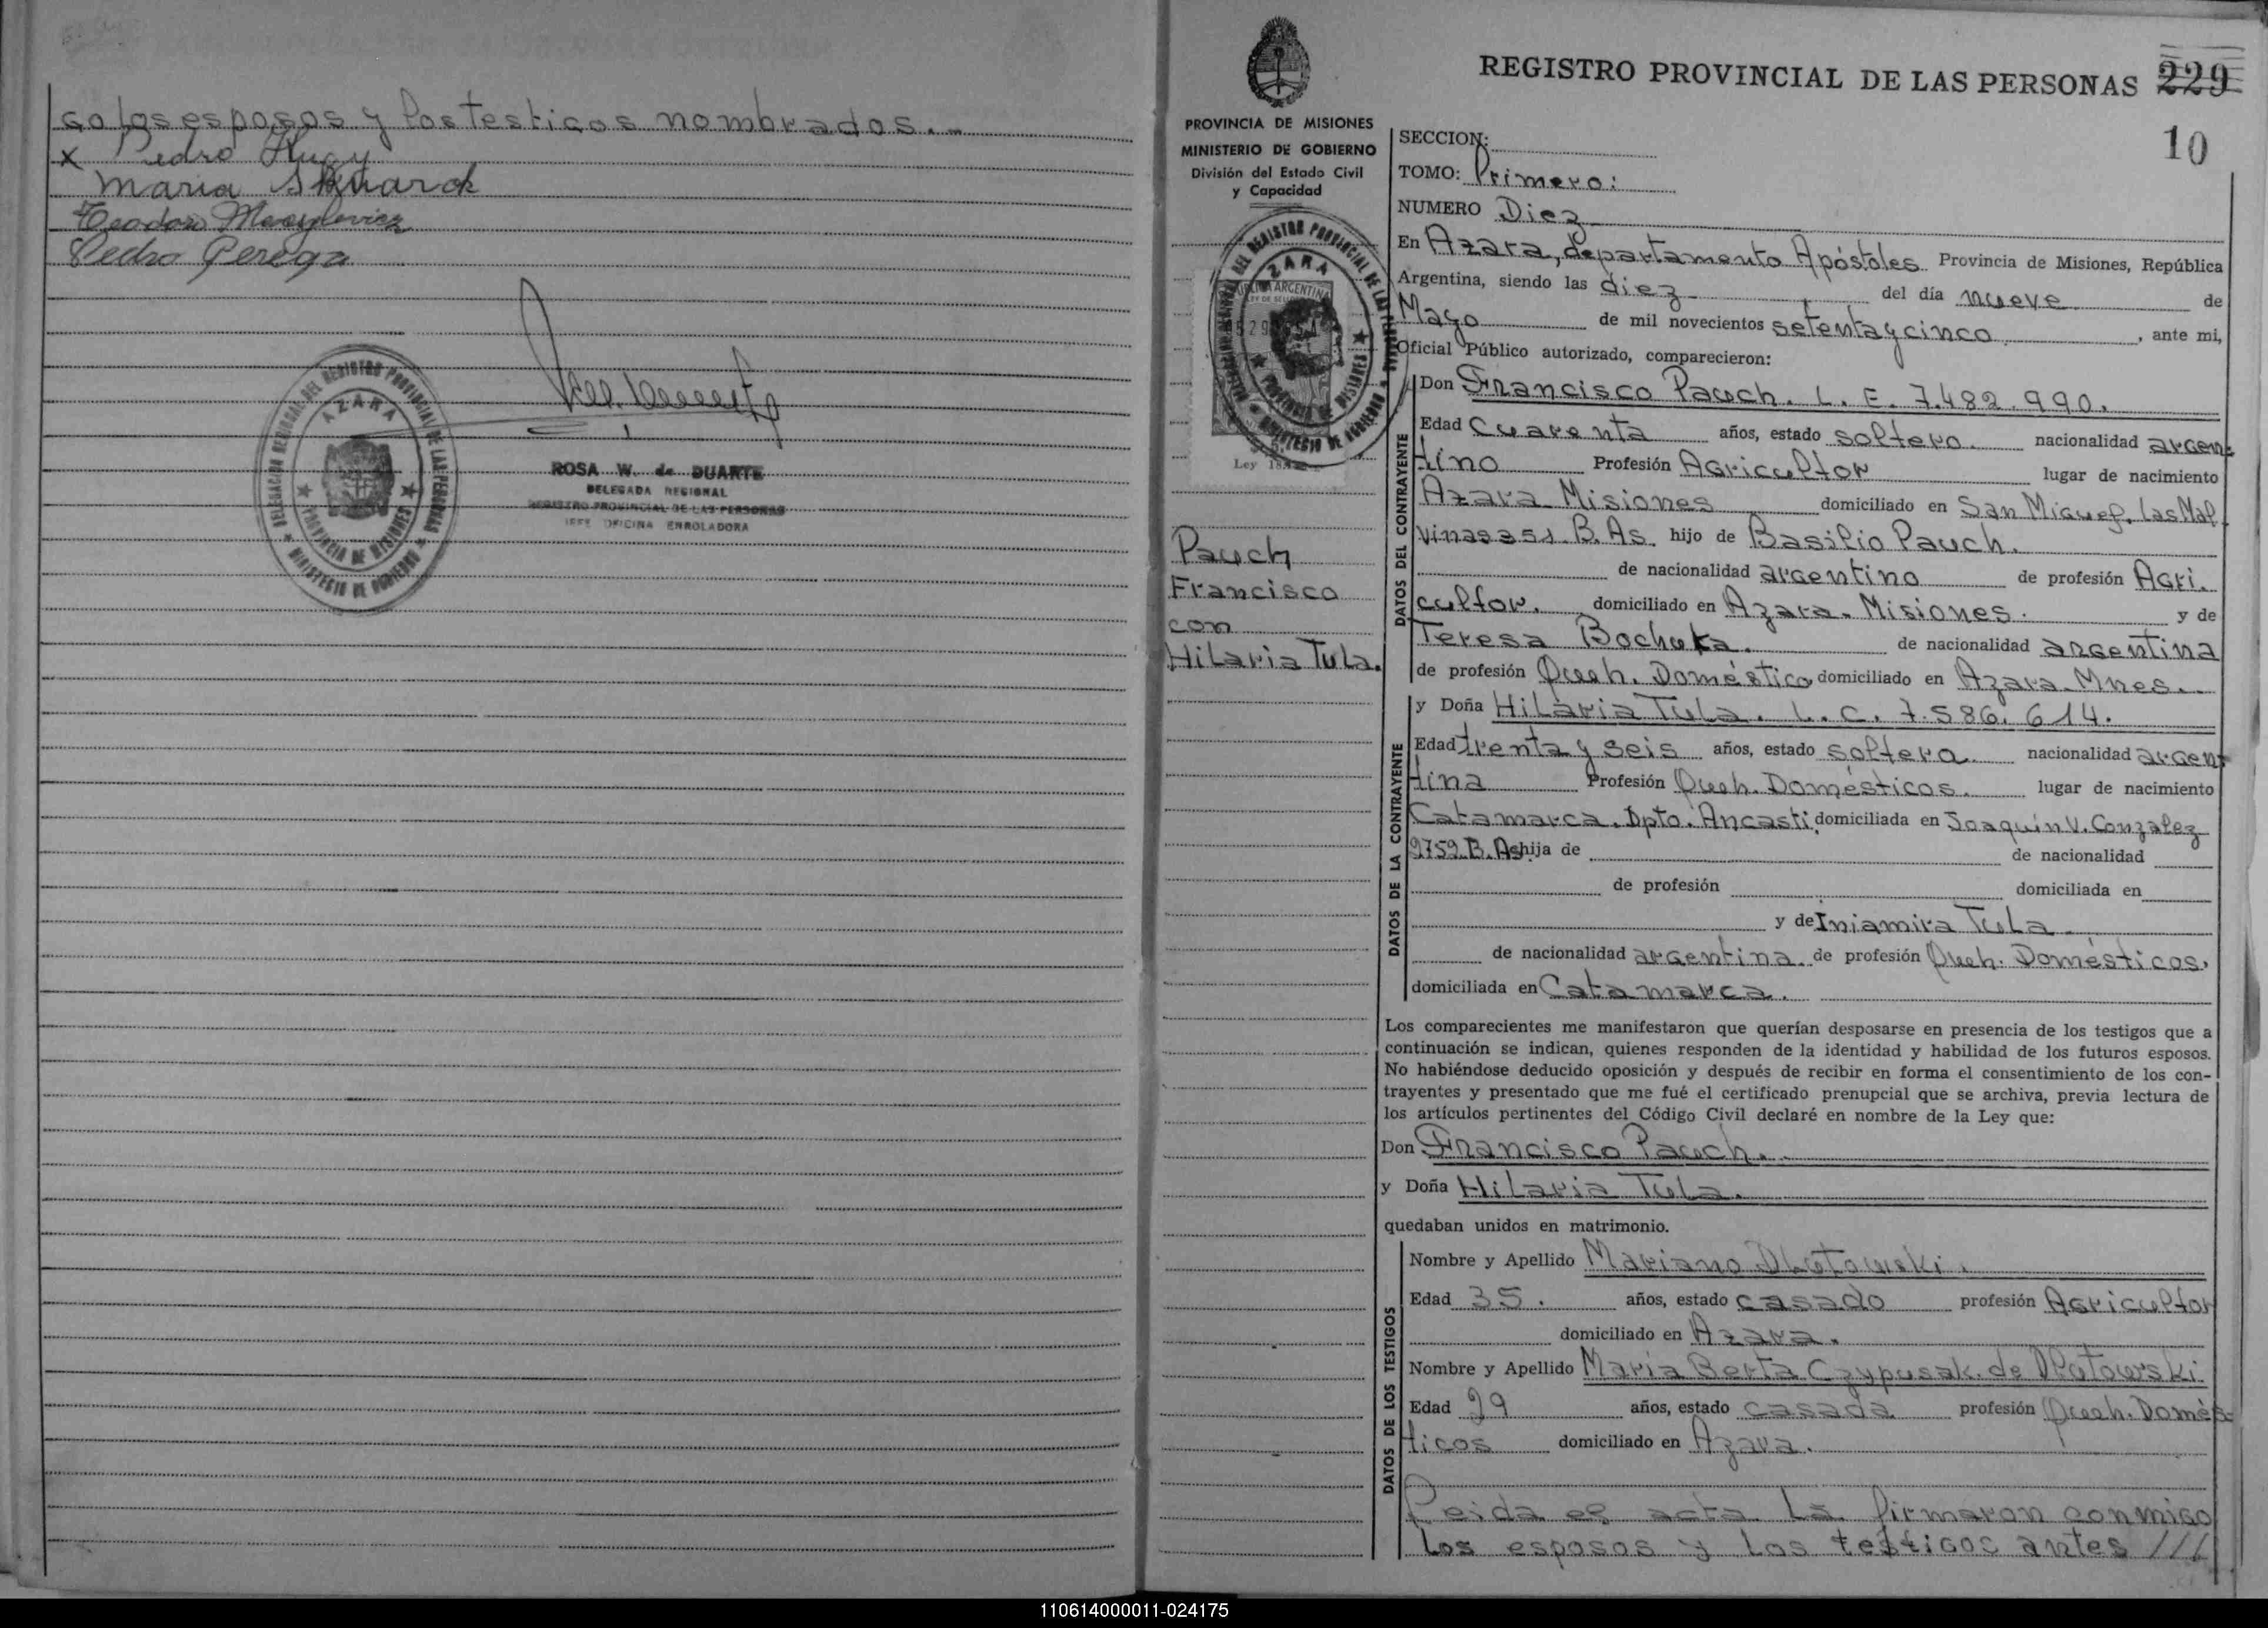 go los esposos y los testigos nombrados. -
x Pedro Hugy
Maria Skwarek
Teodoro
Pedro Perega
DELEGACION REGIONAL DEL REGISTRO PROVINCIAL DE LAS PERSONAS
AZARA
PROVINCIA DE MISIONES
MINISTERIO DE GOBIERNO
ROSA W. de DUARTE
DELEGADA REGIONAL
REGISTRO PROVINCIAL DE LAS PERSONAS
JEFE OFICINA ENROLADORA
REGISTRO PROVINCIAL DE LAS PERSONAS 229
10
PROVINCIA DE MISIONES
MINISTERIO DE GOBIERNO
División del Estado Civil
y Capacidad
DEL REGISTRO PROVINCIAL DE LAS
AZARA
REPUBLICA ARGENTINA
PROVINCIA DE MISIONES
MINISTERIO DE GOBIERNO
Ley
Pauch
Francisco
con
Hilaria Tula.
SECCION:
TOMO: Primero:
NUMERO Diez
En Azara, departamento Apóstoles Provincia de Misiones, República
Argentina, siendo las diez del día nueve de
Mayo de mil novecientos setenta y cinco, ante mi,
Oficial Público autorizado, comparecieron:
DATOS DEL CONTRAYENTE
Don Francisco Pauch. L. E. 7.482.990.
Edad Cuarenta años, estado soltero. nacionalidad argen-
tino Profesión Agricultor lugar de nacimiento
Azara Misiones domiciliado en San Miguel, Las Mal-
vinas 351. B. As. hijo de Basilio Pauch.
de nacionalidad argentino de profesión Agri-
cultor. domiciliado en Azara. Misiones. y de
Teresa Bochuka. de nacionalidad argentina
de profesión Queh. Doméstico domiciliado en Azara. Mnes.
DATOS DE LA CONTRAYENTE
y Doña Hilaria Tula. L. C. 7.586.614.
Edad treinta y seis años, estado soltera nacionalidad argen-
tina Profesión Queh. Domésticos. lugar de nacimiento
Catamarca. Dpto. Ancasti domiciliada en Joaquín V. Gonzalez
2752 B. As hija de de nacionalidad
de profesión domiciliada en
y de Iniamira Tula
de nacionalidad argentina de profesión Queh. Domésticos.
domiciliada en Catamarca.
Los comparecientes me manifestaron que querían desposarse en presencia de los testigos que a
continuación se indican, quienes responden de la identidad y habilidad de los futuros esposos.
No habiéndose deducido oposición y después de recibir en forma el consentimiento de los con-
trayentes y presentado que me fué el certificado prenupcial que se archiva, previa lectura de
los artículos pertinentes del Código Civil declaré en nombre de la Ley que:
Don Francisco Pauch.
y Doña Hilaria Tula.
quedaban unidos en matrimonio.
DATOS DE LOS TESTIGOS
Nombre y Apellido Mariano Dlutowski.
Edad 35. años, estado casado profesión Agricultor
domiciliado en Azara.
Nombre y Apellido Maria Berta Czypusak. de Dlutowski
Edad 29 años, estado casada profesión Queh. Domés-
ticos domiciliado en Azara.
Leida es acta La firmaron conmigo
los esposos y los testigos antes ///
110614000011-024175